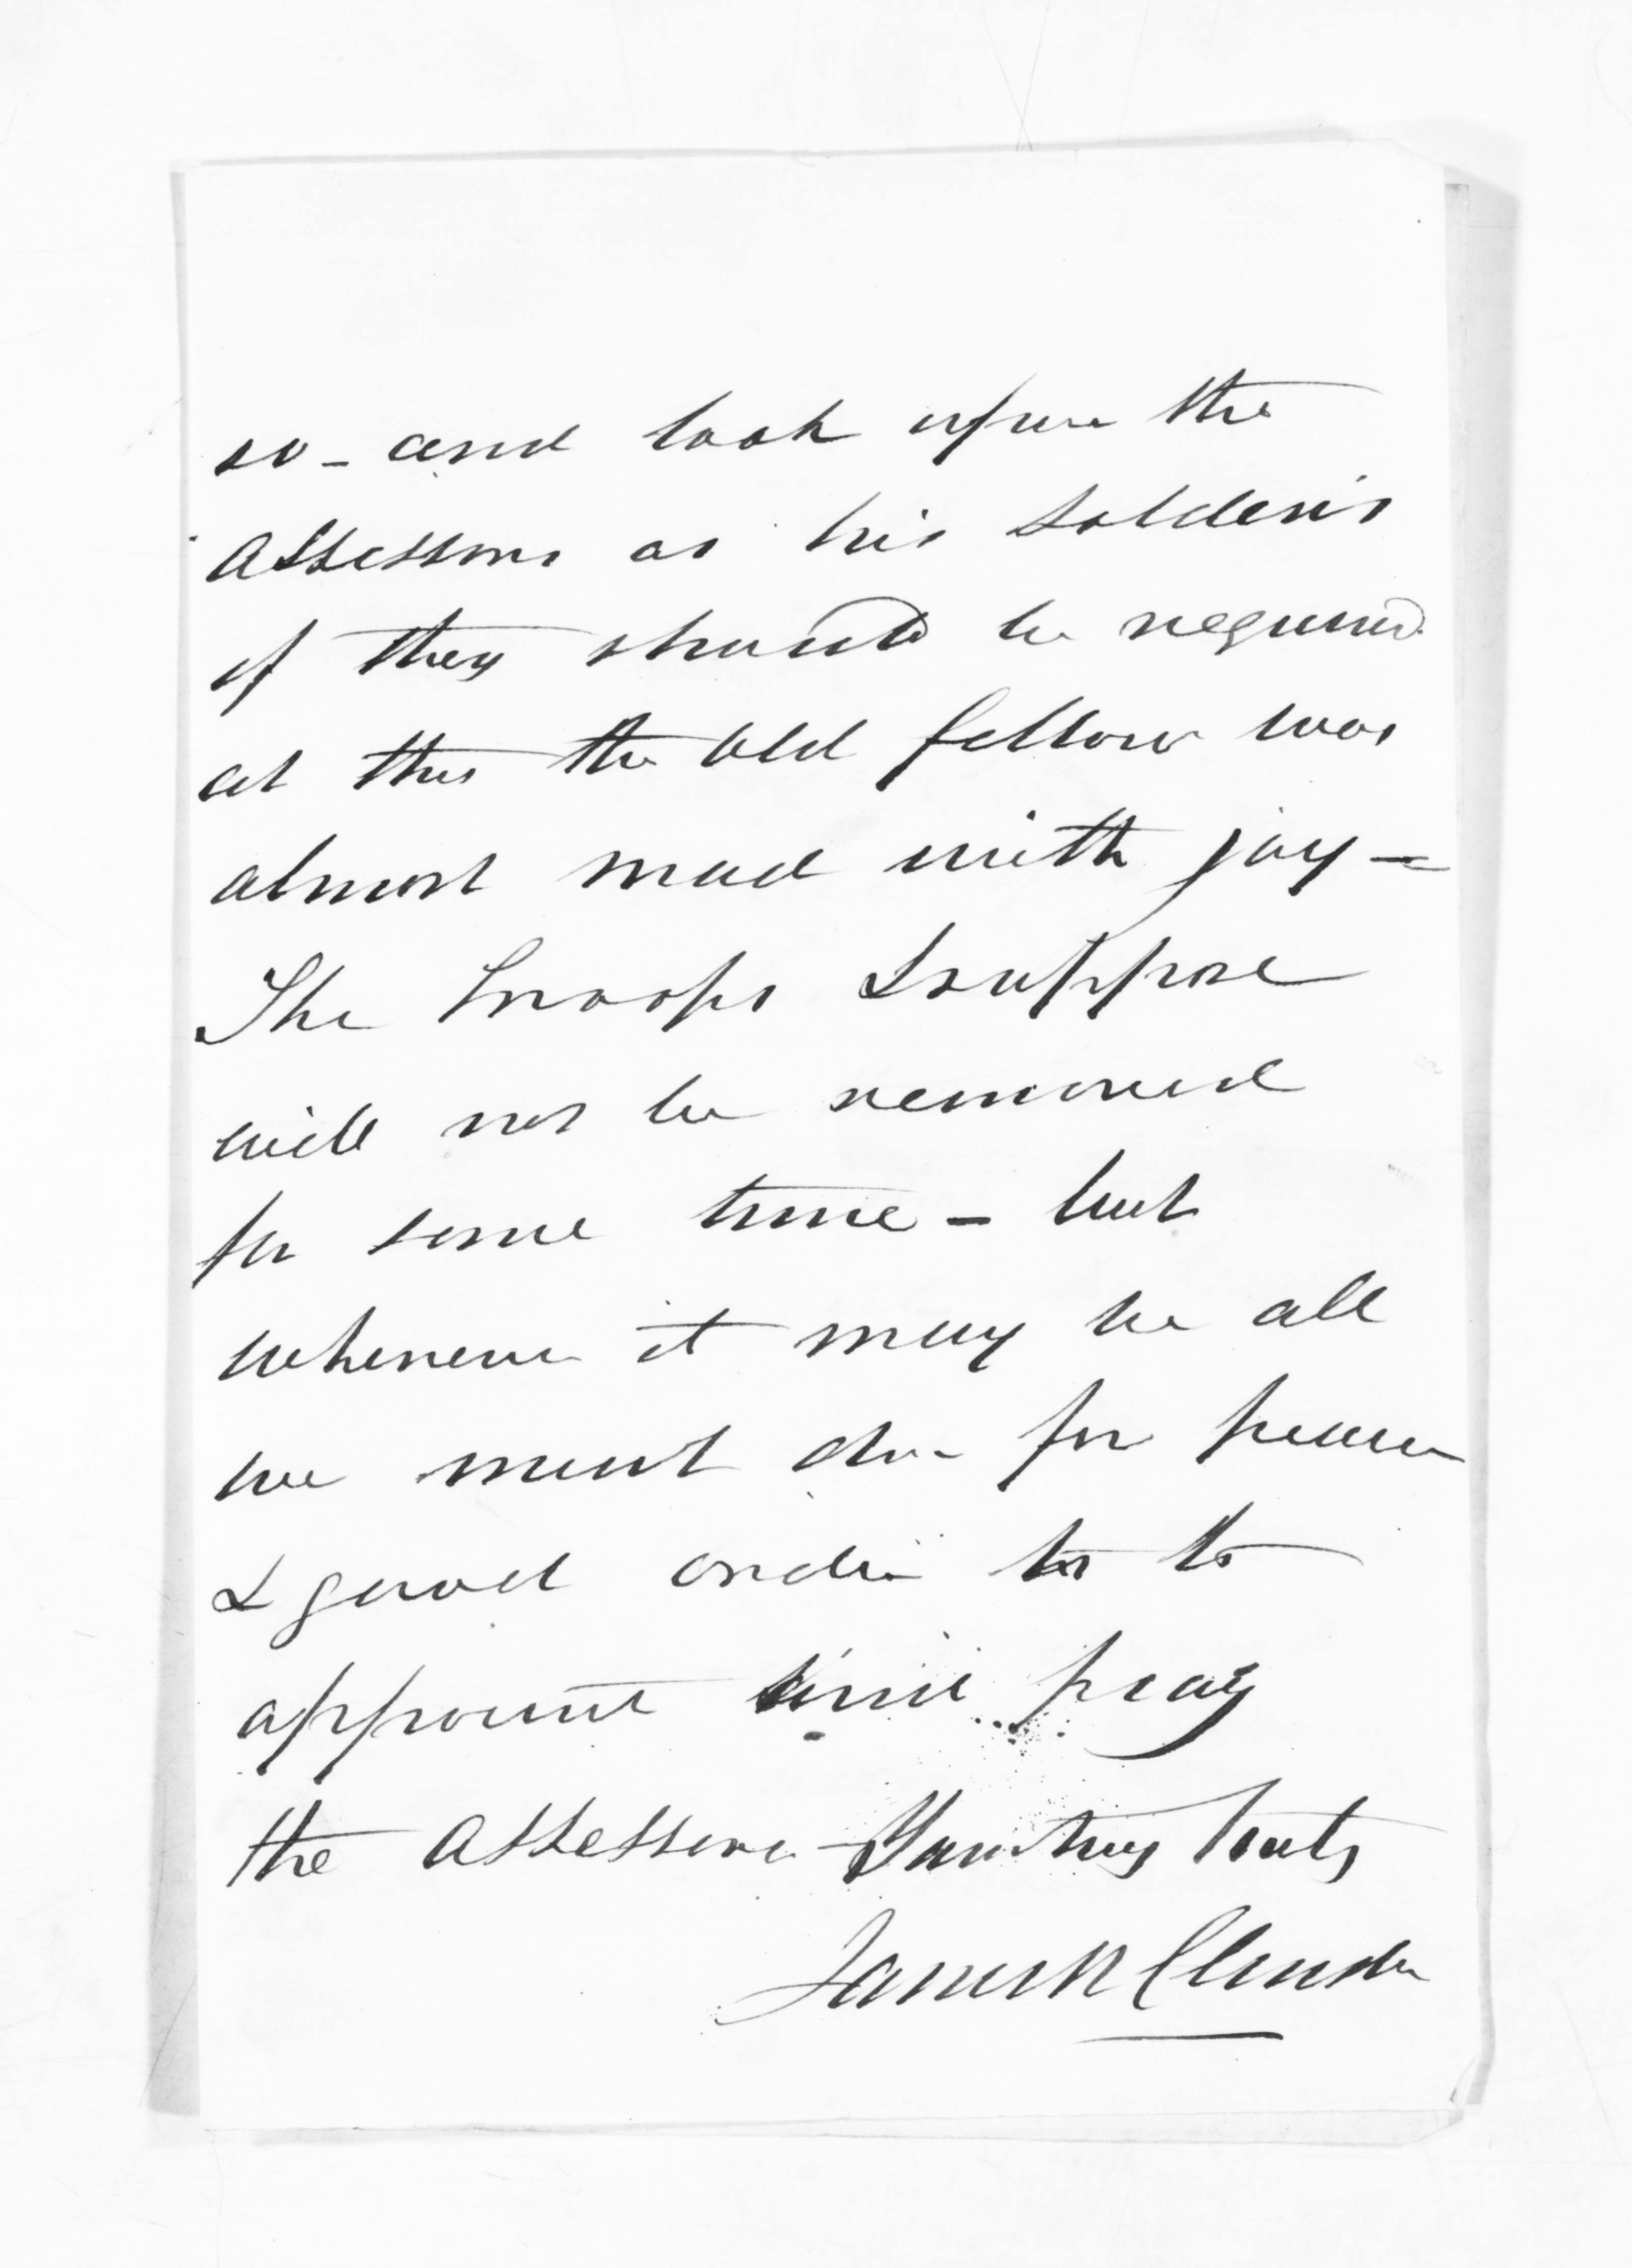 so - and look upon the
Assessors as his Soldiers
if they should be required
at this the old fellow was
almost mad with joy -
The Troops I suppose
will not be removed
for some time - but
whenever it may be all
we must do for peace
& good order is to
appoint and pay
the Assessors - Yours truly
James R Clendon